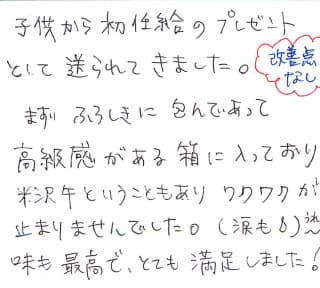 子供から初任給のプレゼント
として送られてきました。
改善点
なし
まず ふろしきに 包んであって
高級感がある箱に入っており
米沢牛ということもあり ワクワクが
止まりませんでした。(涙も💧)うれ
味も最高で、とても 満足しました!